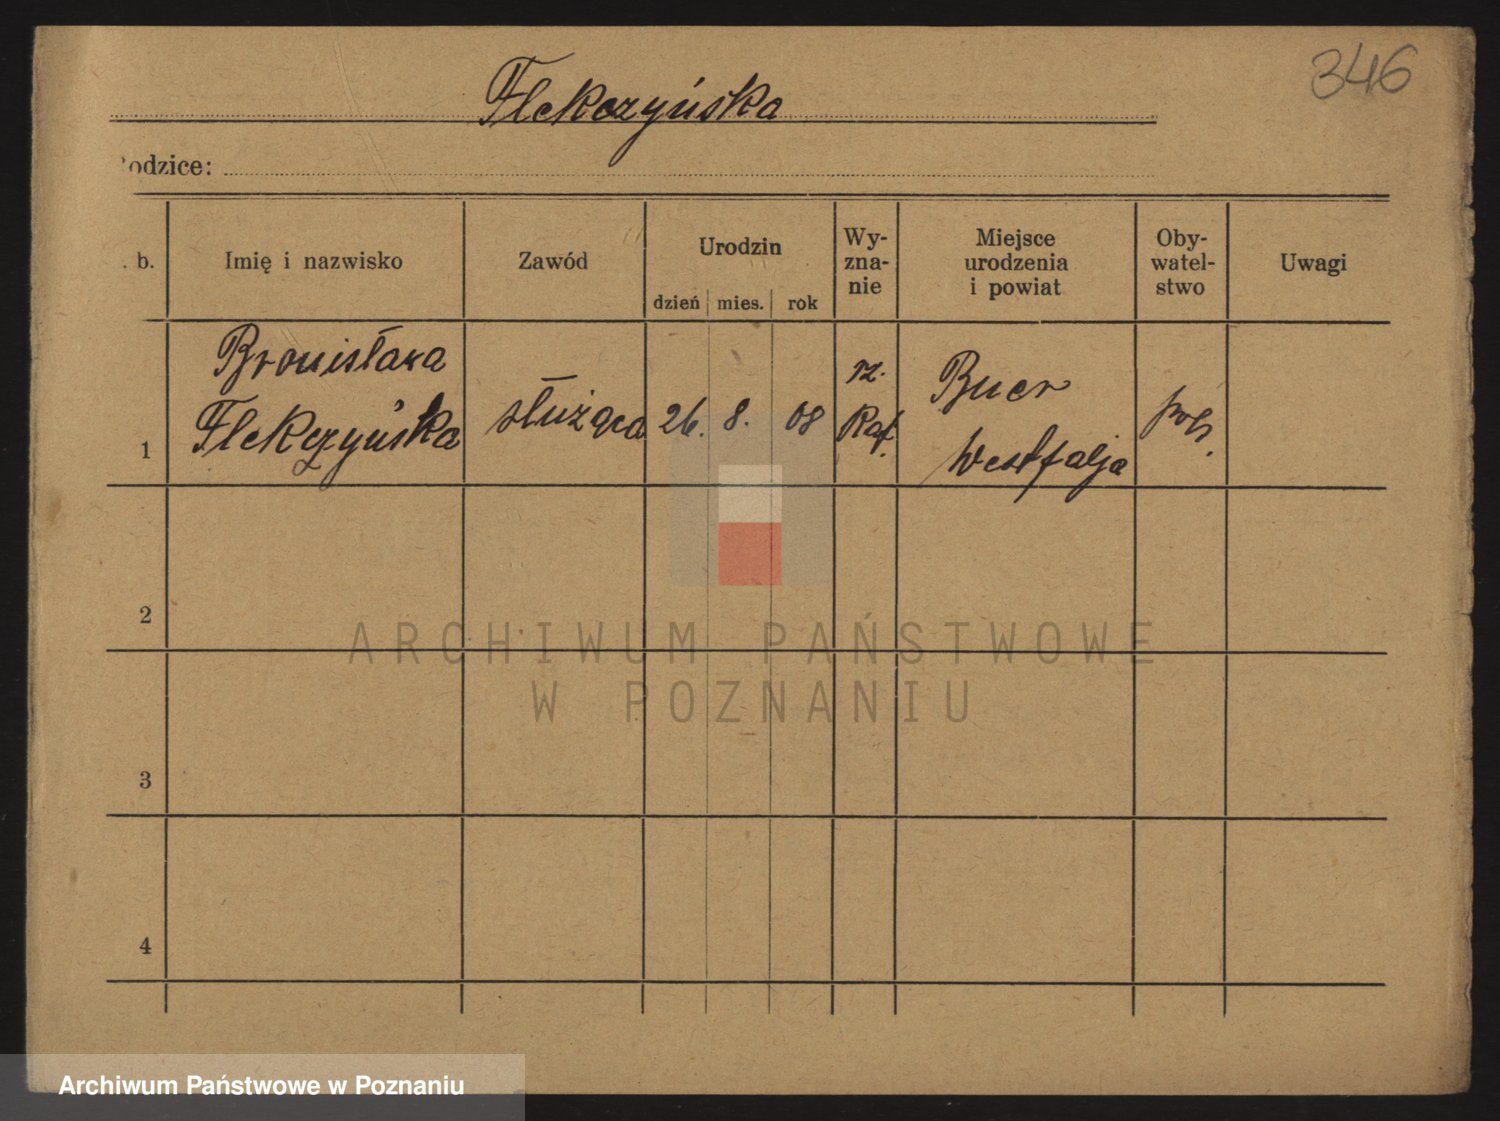 346
Flekczyńska
odzice:
. b.
Imię i nazwisko
Zawód
Urodzin
dzień
mies.
rok
Wy-
zna-
nie
Miejsce
urodzenia
i powiat
Oby-
watel-
stwo
Uwagi
1
Bronisława
Flekczyńska
służąca
26.
8.
08
rz.
Kat.
Buer
Westfalja
pols.
2
3
4
ARCHIWUM PAŃSTWOWE
W POZNANIU
Archiwum Państwowe w Poznaniu